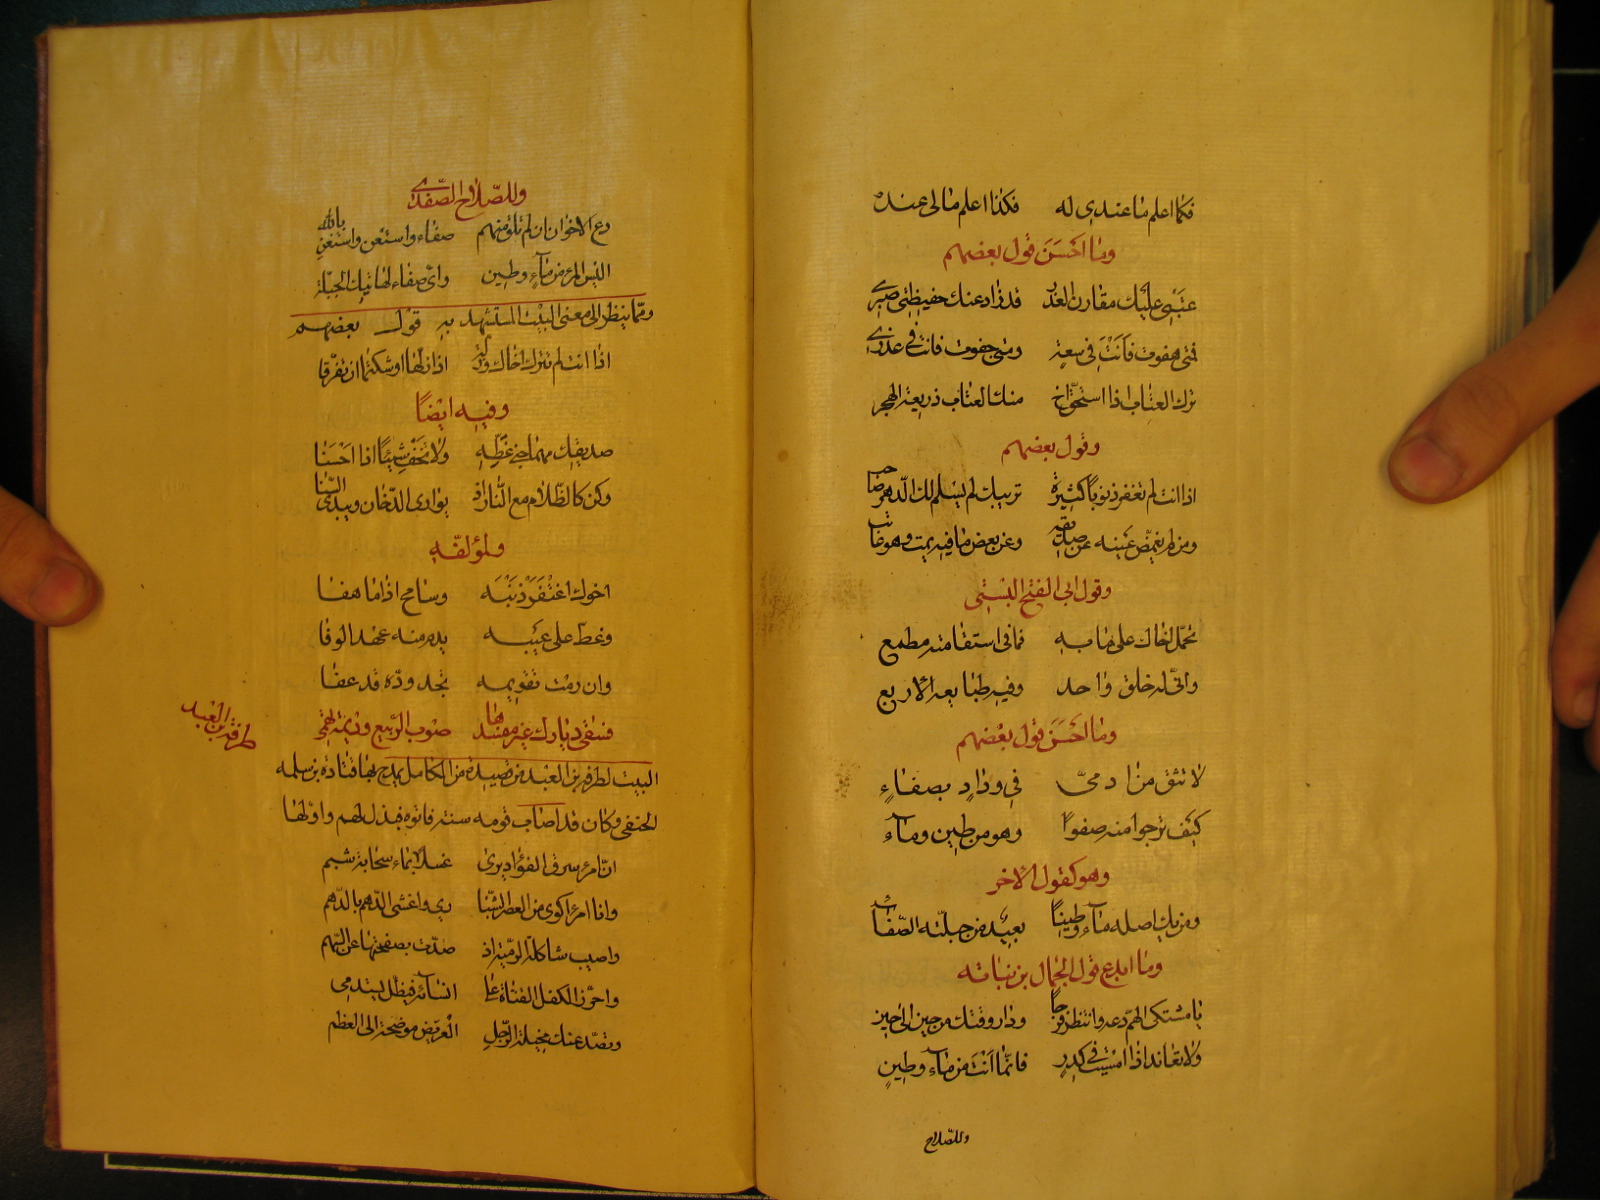 فكما اعلم ما عندي له فكذا اعلم ما لي عنده
وما احسن قول بعضهم
عتبي عليك مقارن العذر قد زاد عنك حفيظتي صبري
فمتى هفوت فانت في سعة ومتى جفوت فانت في عذري
ترك العتاب اذا استحق اخ منك العتاب ذريعة الهجر
وقول بعضهم
اذا انت لم تغفر ذنوبا كثيرة تريبك لم يسلم لك الدهر صاحب
ومن لم يغمض عينه عن صديقه وعن بعض ما فيه يمت وهو عاتب
وقول ابي الفتح البستي
تحمل اخاك على ما به فما في استقامته مطمع
واني له خلق واحد وفيه طبايعه الاربع
وما احسن قول بعضهم
لا تثق من ادمي في وداد بصفاء
كيف ترجوا منه صفوا وهو من طين وماء
وهو كقول الاخر
ومن يك اصله ماء وطينا بعيد من جبلته الصفاء
وما ابدع قول الجمال بن نباته
يا مشتكي الهم دعه وانتظر فرجا ودار وقتك من حين الى حين
ولا تعاند اذا امسيت في كدر فانما انت من ماء وطين
وللصلاح
وللصلاح الصفدي
دع الاخوان ان لم تلق منهم صفاء واستعن واستغن بالله
اليس المرء من ماء وطين واي صفاء لهاتيك الجبلة
ومما ينظر الى معنى البيت المستشهد به قول بعضهم
اذا انت لم تترك اخاك وزلة اذا زلها اوشكتما ان تفرقا
وفيه ايضا
صديقك مهما جنى غطه ولا تخف شيئا اذا احسنا
وكن كالظلام مع النار اذ يوارى الدخان ويبدى السنا
ولمؤلفه
اخوك اغتفر ذنبه وسامح اذا ما هفا
وغط على عيبه يدم منه عهد الوفا
وان رمت تقويمه تجد وده قد عفا
فسقى ديارك غير مفسدها صوب الربيع وديمة تهمي
طرفة بن العبد
البيت لطرفة بن العبد من قصيدة من الكامل يمدح بها قتادة بن سلمه
الحنفي وكان قد اصاب قومه سنة فاتوه فبذل لهم واولها
ان امرء سرف الفؤاد يرى عسلا بماء سحابة شتم
وانا امرء اكوى من القصر البادي واغشى الدهم بالدهم
واصيب شاكلة الرمية اذ صدت بصفحتها عن السهم
واجر ذا الكفل القناة على انسائه فيظل يستدمي
وتصد عنك مخيلة الرجل العريض موضحة الى العظم